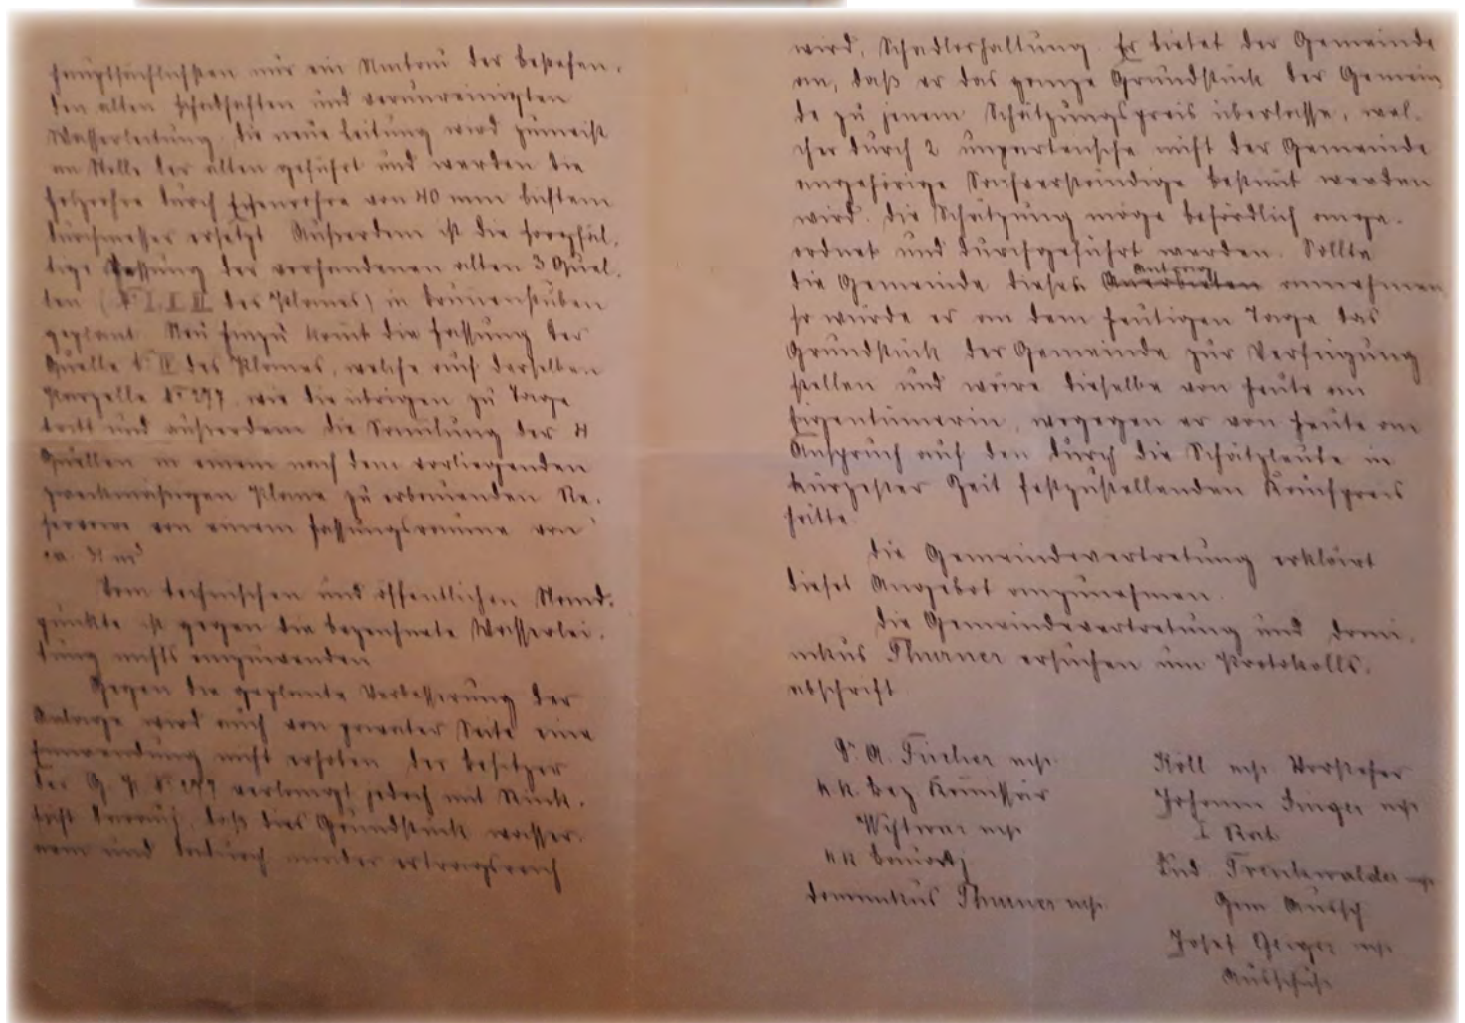 hauptsächlichsten nur ein Umbau der bestehen-
den alten schadhaften und verunreinigten
Wasserleitung. Die neue Leitung wird zumeist
an Stelle der alten geführt und werden die
Holzrohre durch Eisenrohre von 40 mm lichtem
Durchmesser ersetzt. Außerdem ist die sorgfäl-
tige Fassung der vorhandenen alten 3 Quel-
len (No I, II, III des Planes) in Brunnenstuben
geplant. Neu hinzu komt die Fassung der
Quelle No IV des Planes, welche auf derselben
Parzelle No 277 wie die übrigen zu Tage
tritt und außerdem die Samlung der 4
Quellen in einem nach dem vorliegenden
zweckmäßigen Plane zu erbauenden Re-
servoire von einem Fassungsraume von
ca. m³
Vom technischen und öffentlichen Stand-
punkte ist gegen die bezeichnete Wasserlei-
tung nichts einzuwenden.
Gegen die geplante Verbesserung der
Anlage wird auch von privater Seite eine
Einwendung nicht erhoben. Der Besitzer
der G. P. No 277 verlangt jedoch mit Rück-
sicht darauf, daß dies Grundstück wasser-
arm und dadurch minder ertragsreich
wird, Schadloshaltung. Er bietet der Gemeinde
an, daß er das ganze Grundstück der Gemein
de zu jenem Schätzungspreis überlasse, wel-
cher durch 2 unparteiische nicht der Gemeinde
angehörige Sachverständige bestimt werden
wird. Die Schätzung möge behördlich ange-
ordnet und durchgeführt werden. Sollte
die Gemeinde dieses Antrag Anerbieten annehmen
so würde er an dem heutigen Tage das
Grundstück der Gemeinde zur Verfügung
stellen und wäre dieselbe von heute an
Eigentümerin, wogegen er von heute an
Anspruch auf den durch die Schätzleute in
kürzester Zeit festzustellenden Kaufpreis
hätte.
Die Gemeindevertretung erklärt
dieses Angebot anzunehmen.
Die Gemeindevertretung und Domi-
nikus Thurner ersuchen um Protokolls-
abschrift.
Dr. A. mp.
k.k. Bez. Komissär
mp.
k.k.
Dominikus Thurner mp.
Köll mp. Vorsteher
Johann mp
I Rat
Trenkwalder mp
Gem Aussch
Josef Geiger mp.
Ausschuß